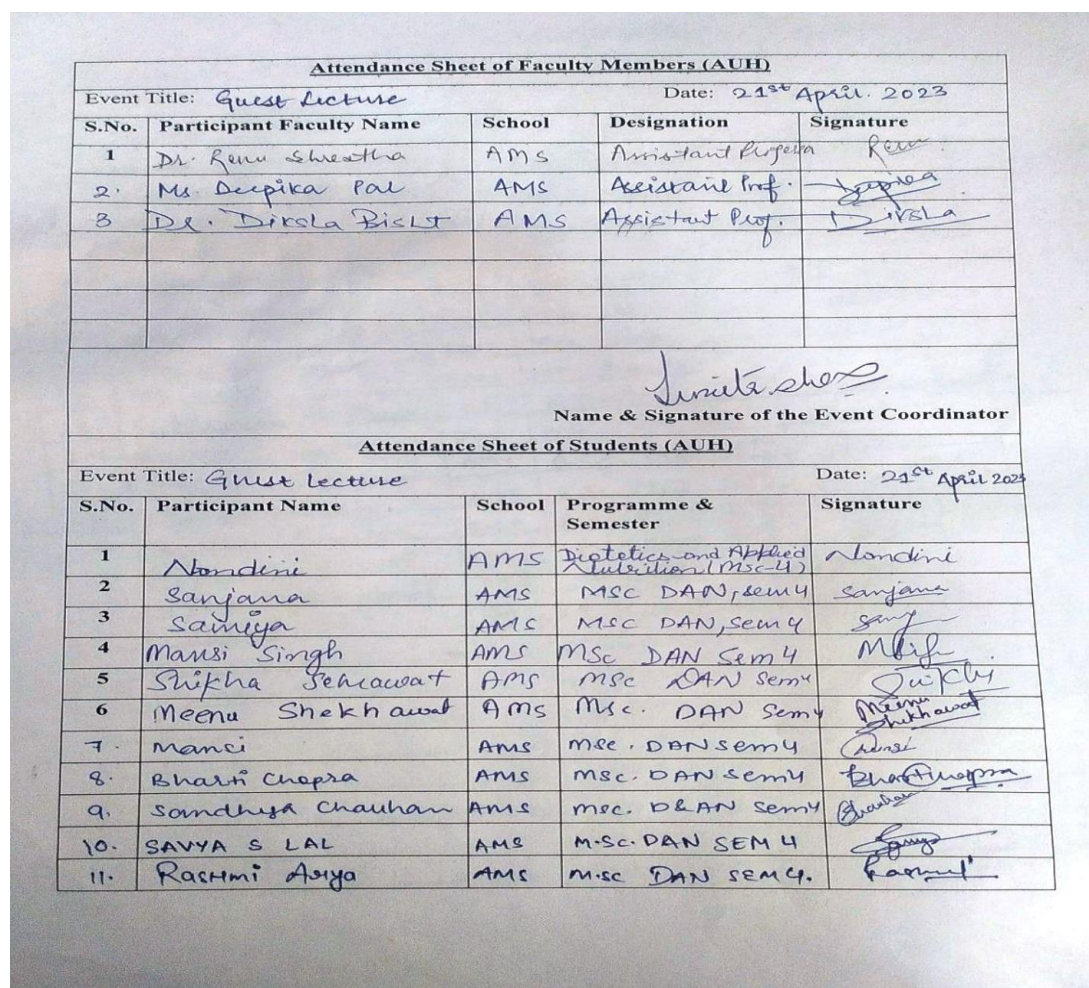 Attendance Sheet of Faculty Members (AUH)
Event Title: Guest Lecture Date: 21st April. 2023
S.No. Participant Faculty Name School Designation Signature
1 Dr. Renu Shrestha AMS Assistant Renu
2. Ms. Deepika Pal AMS Assistant Prof. Deepika
3 Dr. Diksha Bisht AMS Assistant Prof. Diksha
Name & Signature of the Event Coordinator
Attendance Sheet of Students (AUH)
Event Title: Guest Lecture Date: 21st April 2023
S.No. Participant Name School Programme & Semester Signature
1 Nandini AMS Dietetics and Applied Nutrition (Msc-4) Nandini
2 Sanjana AMS MSC DAN, sem 4 Sanjana
3 Samiya AMS MSC DAN, Sem 4
4 Mansi Singh AMS MSc DAN Sem 4
5 Shikha Sehrawat AMS MSc DAN Sem 4
6 Meenu Shekhawat AMS Msc. DAN Sem 4 Meenu Shekhawat
7. Mansi AMS Msc. DAN Sem 4 Mansi
8. Bharti Chopra AMS Msc. DAN Sem 4 Bharti Chopra
9. Sandhya Chauhan AMS Msc. D&AN Sem 4
10. SAVYA S LAL AMS M.SC. DAN SEM 4
11. Rashmi Arya AMS M.Sc DAN SEM 4. Rashmi